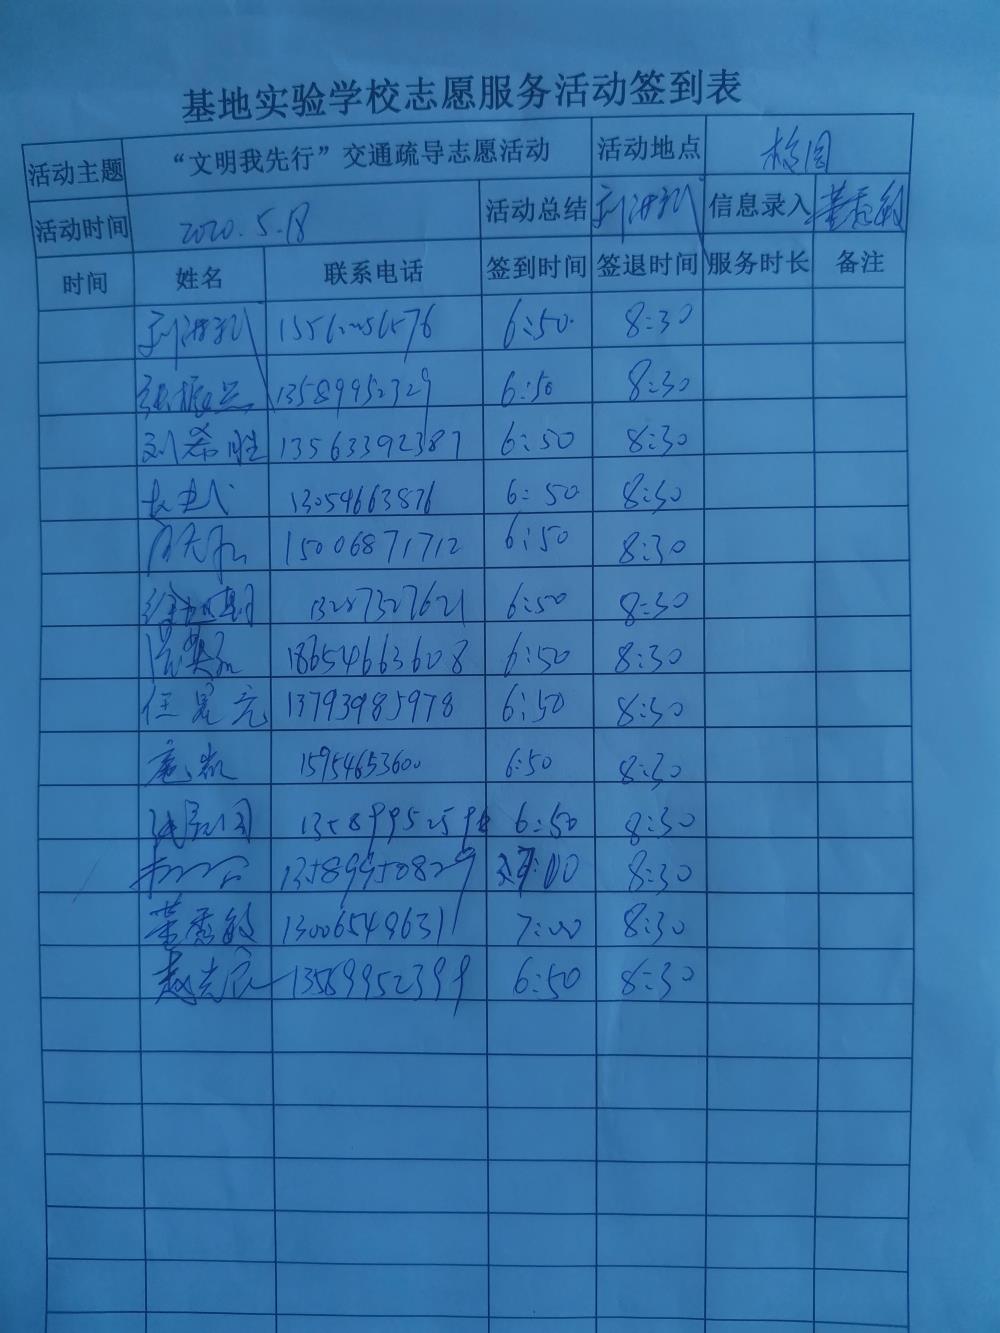 基地实验学校志愿服务活动签到表
活动主题 “文明我先行”交通疏导志愿活动 活动地点 校园
活动时间 2020.5.18 活动总结 信息录入 董秀敏
时间 姓名 联系电话 签到时间 签退时间 服务时长 备注
6:50 8:30
张振兴 13589952329 6:50 8:30
刘希胜 13563392387 6:50 8:30
13054663876 6:50 8:30
15006871712 6:50 8:30
13287327621 6:50 8:30
18654663608 6:50 8:30
任景亮 13793985978 6:50 8:30
庞凯 15954653600 6:50 8:30
6:50 8:30
13589950829 7:00 8:30
董秀敏 13006549631 7:00 8:30
赵光辰 13589952399 6:50 8:30